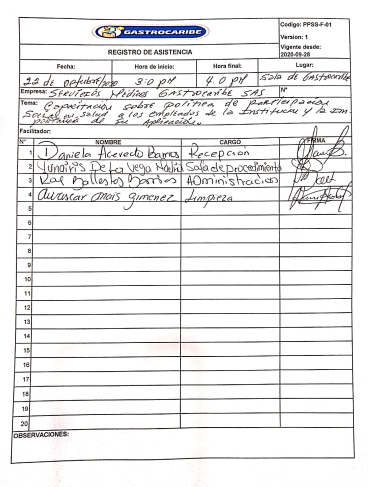 GASTROCARIBE
REGISTRO DE ASISTENCIA
Codigo: PPSS-F-01
Version: 1
Vigente desde:
2020-09-28
Fecha: Hora de inicio: Hora final: Lugar:
22 de octubre/2020 3:0 PM 4.0 PM Sala de Gastrocaribe
Empresa: Servicios Medicos Gastrocaribe SAS N°
Tema: Capacitacion sobre politica de participacion
Social en salud a los empleados de la Institucion y la Im
portancia de su aplicacion.
Facilitador:
N° NOMBRE CARGO FIRMA
1 Daniela Acevedo Barros Recepcion
2 Yunairis De La Vega Sala de procedimiento
3 Ballestas Barrios Administracion
4 anais gimenez Limpieza
5
6
7
8
9
10
11
12
13
14
15
16
17
18
19
20
OBSERVACIONES: